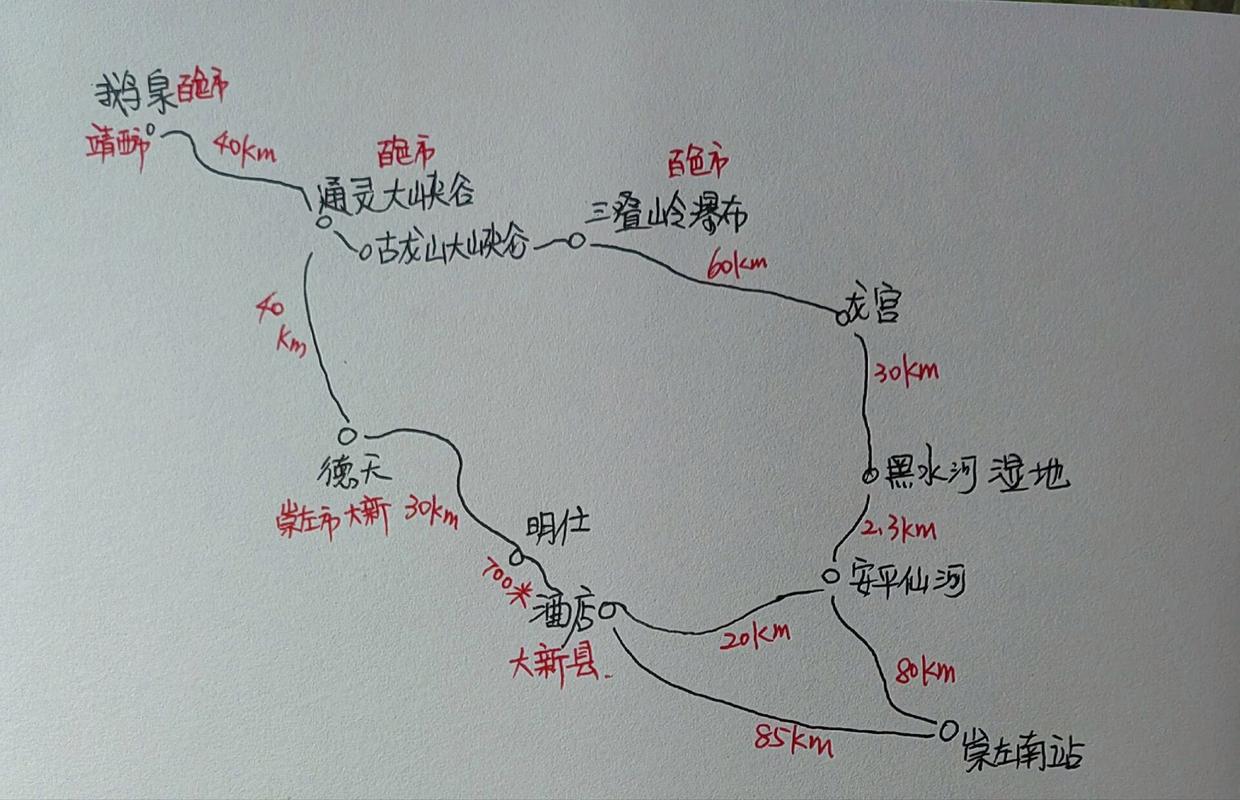 鹅泉百色市
靖西市
40km
百色市
通灵大峡谷
古龙山大峡谷
百色市
三叠岭瀑布
60km
龙宫
40
km
30km
德天
崇左市大新 30km
黑水河湿地
明仕
2.3km
700米
安平仙河
酒店
大新县.
20km
80km
85km
崇左南站